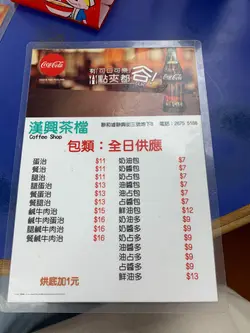 Coca-Cola
有「可口可樂」
點夾都
漢興茶檔
Coffee Shop
包類：全日供應
蛋治 $11 奶油包 $7
餐治 $11 奶醬包 $7
腿治 $11 油醬包 $7
餐蛋治 $13 油占包 $7
腿蛋治 $13 占醬包 $7
鹹牛肉治 $15 鮮油包 $12
蛋鹹牛肉治 $16 奶油多 $9
腿鹹牛肉治 $16 奶醬多 $9
餐鹹牛肉治 $16 油醬多 $9
油占多 $9
占醬多 $9
奶占多 $9
鮮油多 $13
烘底加1元